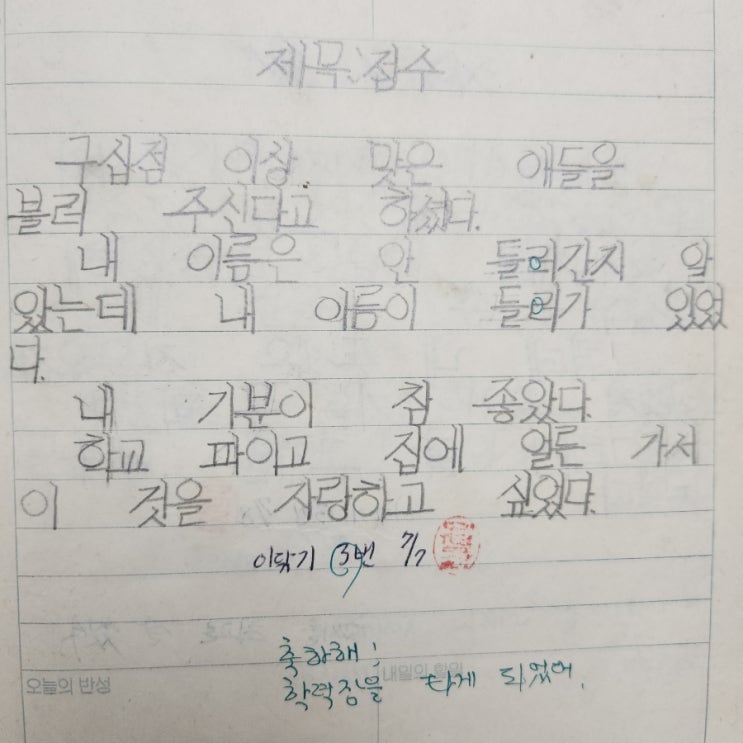 제목: 점수
구십점 이상 맞은 애들을
불러 주신다고 하셨다.
내 이름은 안 들리간지 알
았는데 내 이름이 들리가 있었
다.
내 기분이 참 좋았다.
학교 파이고 집에 얼른 가서
이 것을 자랑하고 싶었다.
이닦기 3번 7/7
축하해!
학력장을 타게 되었어.
오늘의 반성
내일의 할일